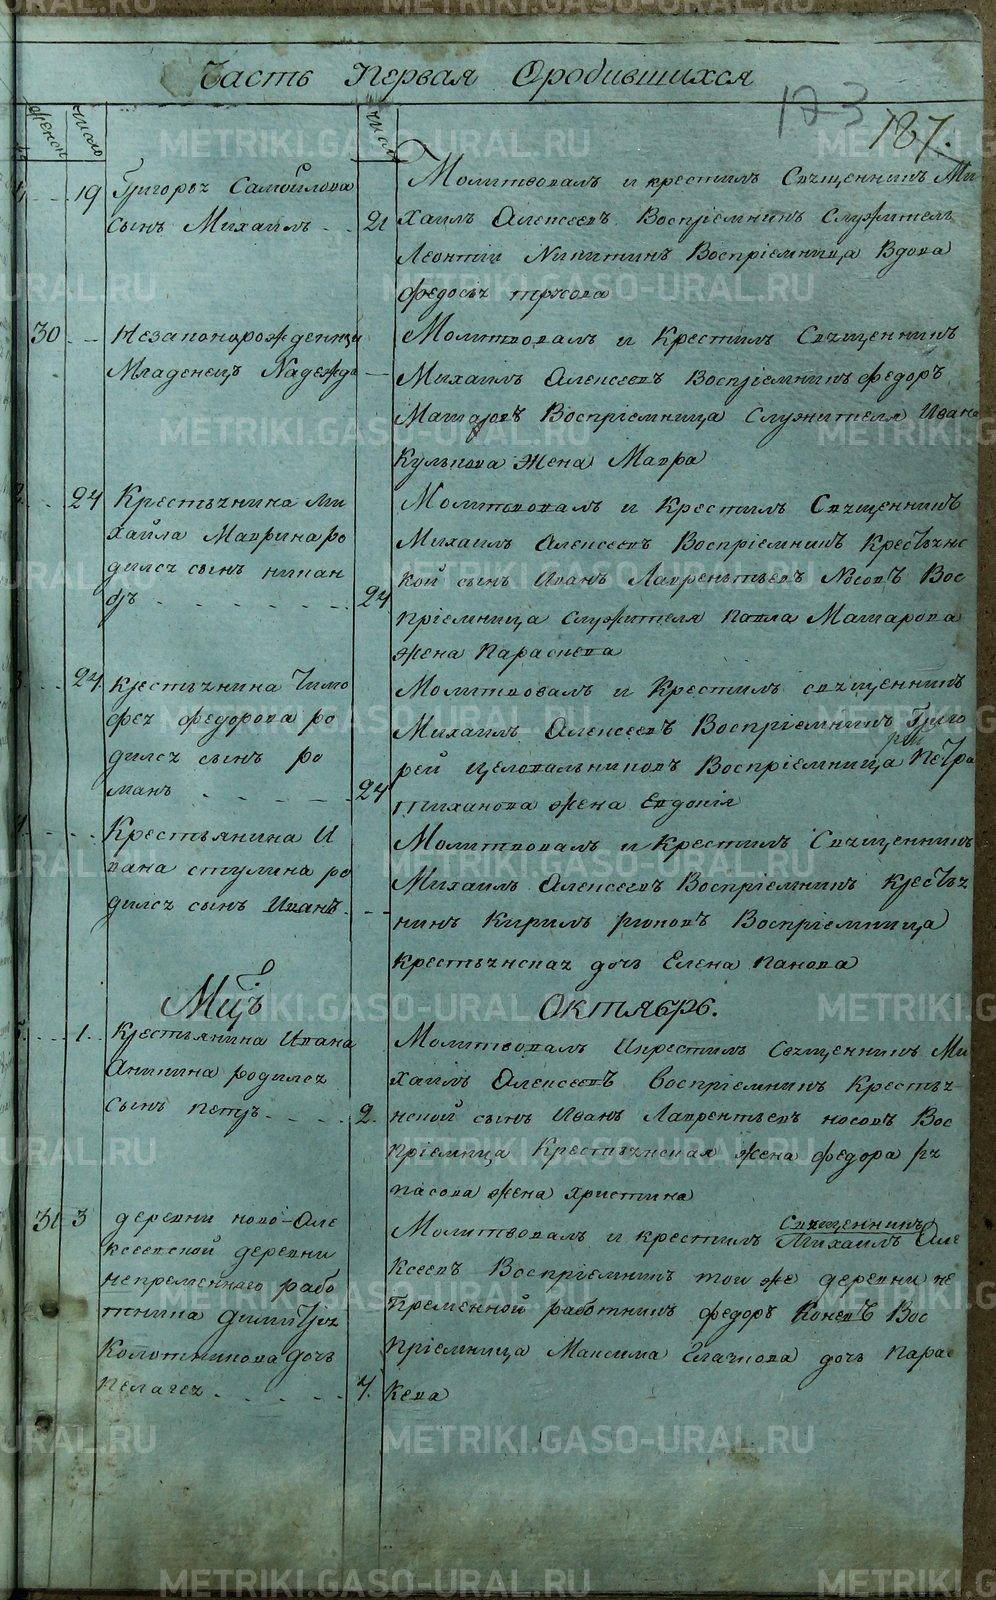 Часть Первая Ородившихся
173
187.
женск
число
число
19
Григорья Самойлова
сынъ Михаилъ
21
Молитвовалъ и крестилъ Священникъ Ми
хаилъ Алексеевъ Воспріемникъ Служитель
Леонтіи Никитинъ Воспріемница Вдова
Федосья
30
Незаконорожденный
Младенецъ Надежда
Молитвовалъ и Крестилъ Священникъ
Михаилъ Алексеевъ Воспріемникъ Федоръ
Машаровъ Воспріемница Служителя Ивана
Кулькова Жена Мавра
24
Крестьянина Ми
хайла Маврина ро
дился сынъ никан
дръ
24
Молитвовалъ и Крестилъ Священникъ
Михаилъ Алексеевъ Воспріемникъ Крестьянс
кой сынъ Иванъ Лаврентьевъ Носовъ Вос
пріемница служителя павла Машарова
жена Параскева
24.
крестьянина Тимо
фея федорова ро
дился сынъ ро
манъ
24
Молитвовалъ и Крестилъ священникъ
Михаилъ Алексеевъ Воспріемникъ Григо
рей целовальниковъ Воспріемница Петра
тиханова жена Евдокія
Крестьянина И
вана стулина ро
дился сынъ Иванъ
Молитвовалъ и Крестилъ Священникъ
Михаилъ Алексеевъ Воспріемникъ крестья
нинъ Кирилъ Воспріемница
крестьянская дочь Елена панова
Мцъ
Октябрь.
1.
Крестьянина Ивана
Аникина родился
сынъ петръ
2.
Молитвовалъ Икрестилъ Священникъ Ми
хаилъ Алексеевъ воспріемникъ Крестья
нской сынъ Иванъ Лаврентьевъ носовъ Вос
пріемница Крестьянская жена федора ря
пасова жена христина
31
3
деревни ново-Але
ксеевской деревни
непременнаго рабо
тника димитрея
Колотникова дочь
пелагея
4.
Молитвовалъ и крестилъ Священникъ
Михаилъ Але
ксеевъ Воспріемникъ той же деревни не
пременной работникъ федоръ Коневъ Вос
пріемница Максима Глазкова дочь пара
кева